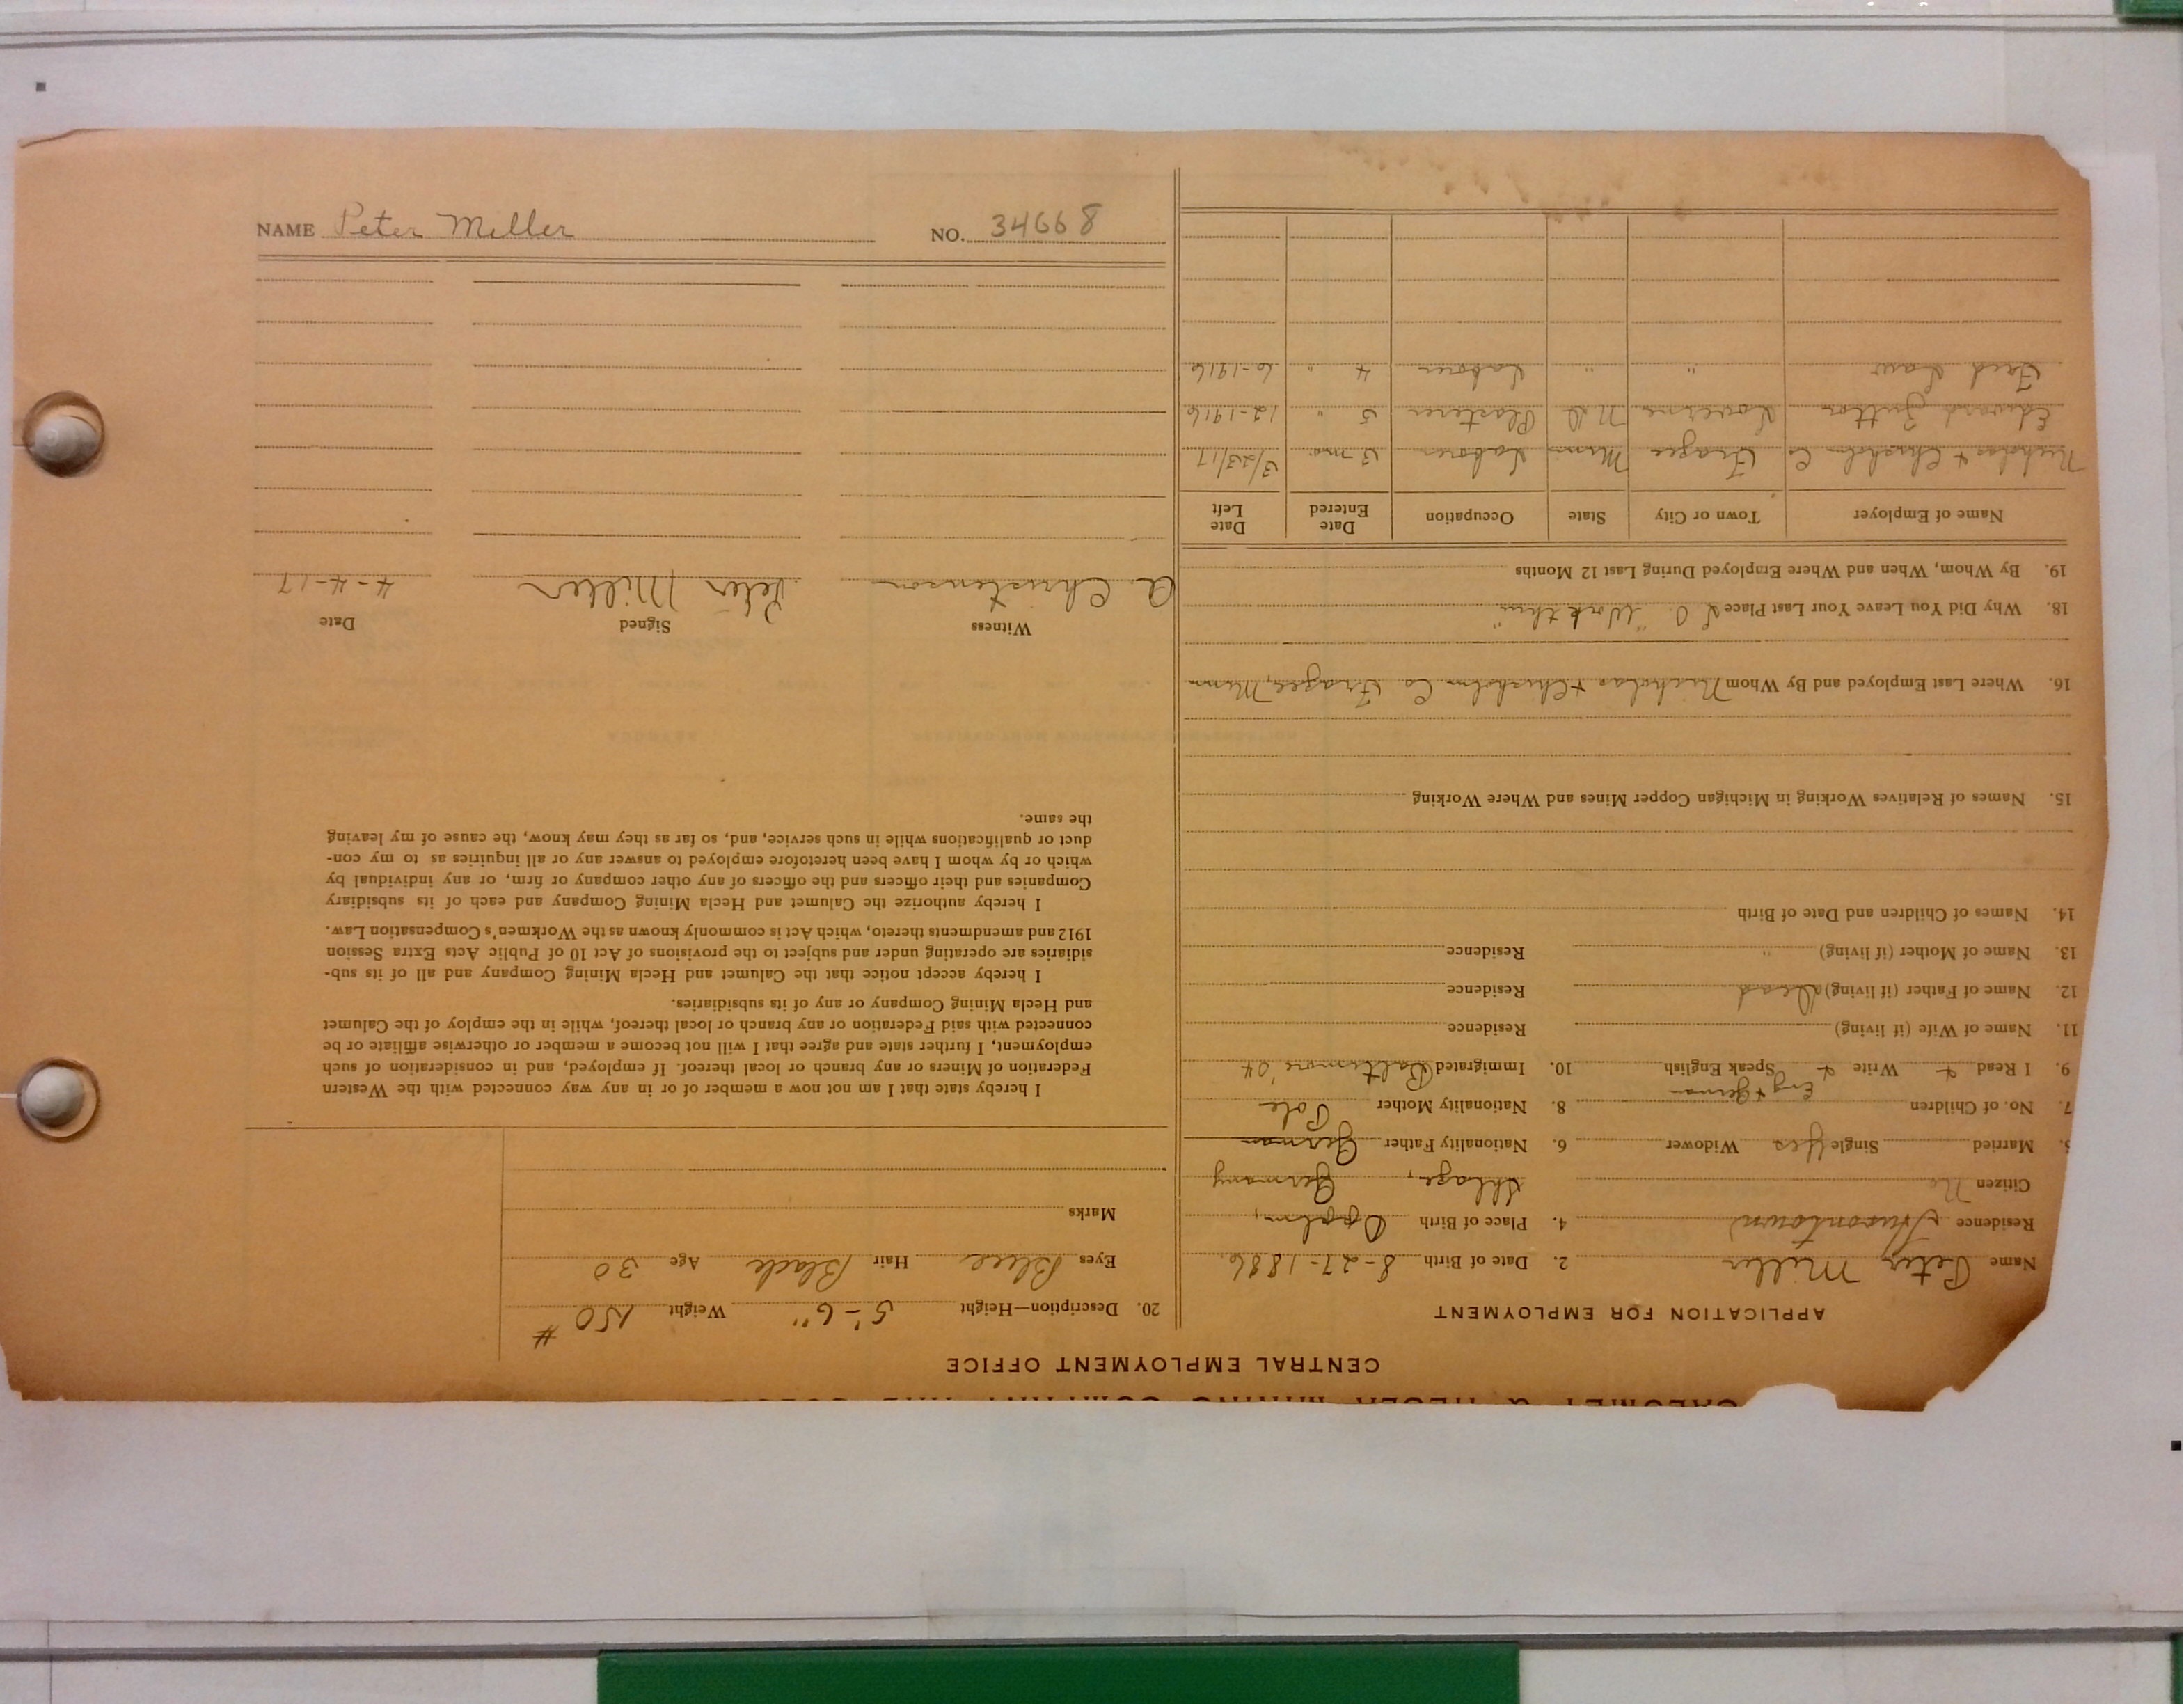 NAME Peter Miller NO. 34668
CALUMET & HECLA MINING COMPANY AND
CENTRAL EMPLOYMENT OFFICE
APPLICATION FOR EMPLOYMENT
Name Peter Miller 2. Date of Birth 8-27-1886
Residence 4. Place of Birth
Citizen No Germany
Married Single Yes Widower 6. Nationality Father German
7. No. of Children 8. Nationality Mother Pole
Eng + German
9. I Read + Write + Speak English 10. Immigrated Baltimore '04
11. Name of Wife (if living) Residence
12. Name of Father (if living) Dead Residence
13. Name of Mother (if living) " Residence
14. Names of Children and Date of Birth
15. Names of Relatives Working in Michigan Copper Mines and Where Working
16. Where Last Employed and By Whom Nicholas + Chisholm Co. Frazee, Minn
18. Why Did You Leave Your Last Place
19. By Whom, When and Where Employed During Last 12 Months
Name of Employer Town or City State Occupation Date Entered Date Left
Nicholas + Chisholm Co Frazee Minn Laborer 3 mo 3/23/17
Edward Luverne N D Plasterer 5 " 12-1916
Fred " " Laborer 4 " 6-1916
20. Description—Height 5'-6" Weight 150 #
Eyes Blue Hair Black Age 30
Marks
I hereby state that I am not now a member of or in any way connected with the Western
Federation of Miners or any branch or local thereof. If employed, and in consideration of such
employment, I further state and agree that I will not become a member or otherwise affiliate or be
connected with said Federation or any branch or local thereof, while in the employ of the Calumet
and Hecla Mining Company or any of its subsidiaries.
I hereby accept notice that the Calumet and Hecla Mining Company and all of its sub-
sidiaries are operating under and subject to the provisions of Act 10 of Public Acts Extra Session
1912 and amendments thereto, which Act is commonly known as the Workmen's Compensation Law.
I hereby authorize the Calumet and Hecla Mining Company and each of its subsidiary
Companies and their officers and the officers of any other company or firm, or any individual by
which or by whom I have been heretofore employed to answer any or all inquiries as to my con-
duct or qualifications while in such service, and, so far as they may know, the cause of my leaving
the same.
Witness Signed Date
A. Christenson Peter Miller 4-4-17